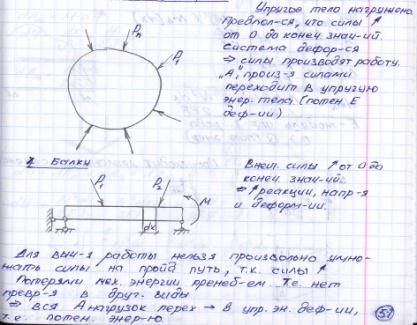 Упругое тело нагружено
Предпол-ся, что силы ↑
от 0 до конец. знач-ий.
Система дефор-ся
⇒ силы производят работу.
"А" произ-я силами
переходит в упругую
энер. тела (потен. Е
деф-ии)
Pn
P1
Балку
Внеш. силы ↑ от 0 до
конец. знач-ий.
⇒ ↑ реакции, напр-я
и деформ-ии.
P1
P2
M
dx
Для выч-я работы нельзя произвольно умно-
жать силы на пройд путь, т.к. силы ↑
Потерями мех. энергии пренеб-ем. Т.е. нет
превр-я в друг. виды
⇒ вся А нагрузок перех → в упр. эн. деф-ии,
т.е. потен. энер-ю.
51